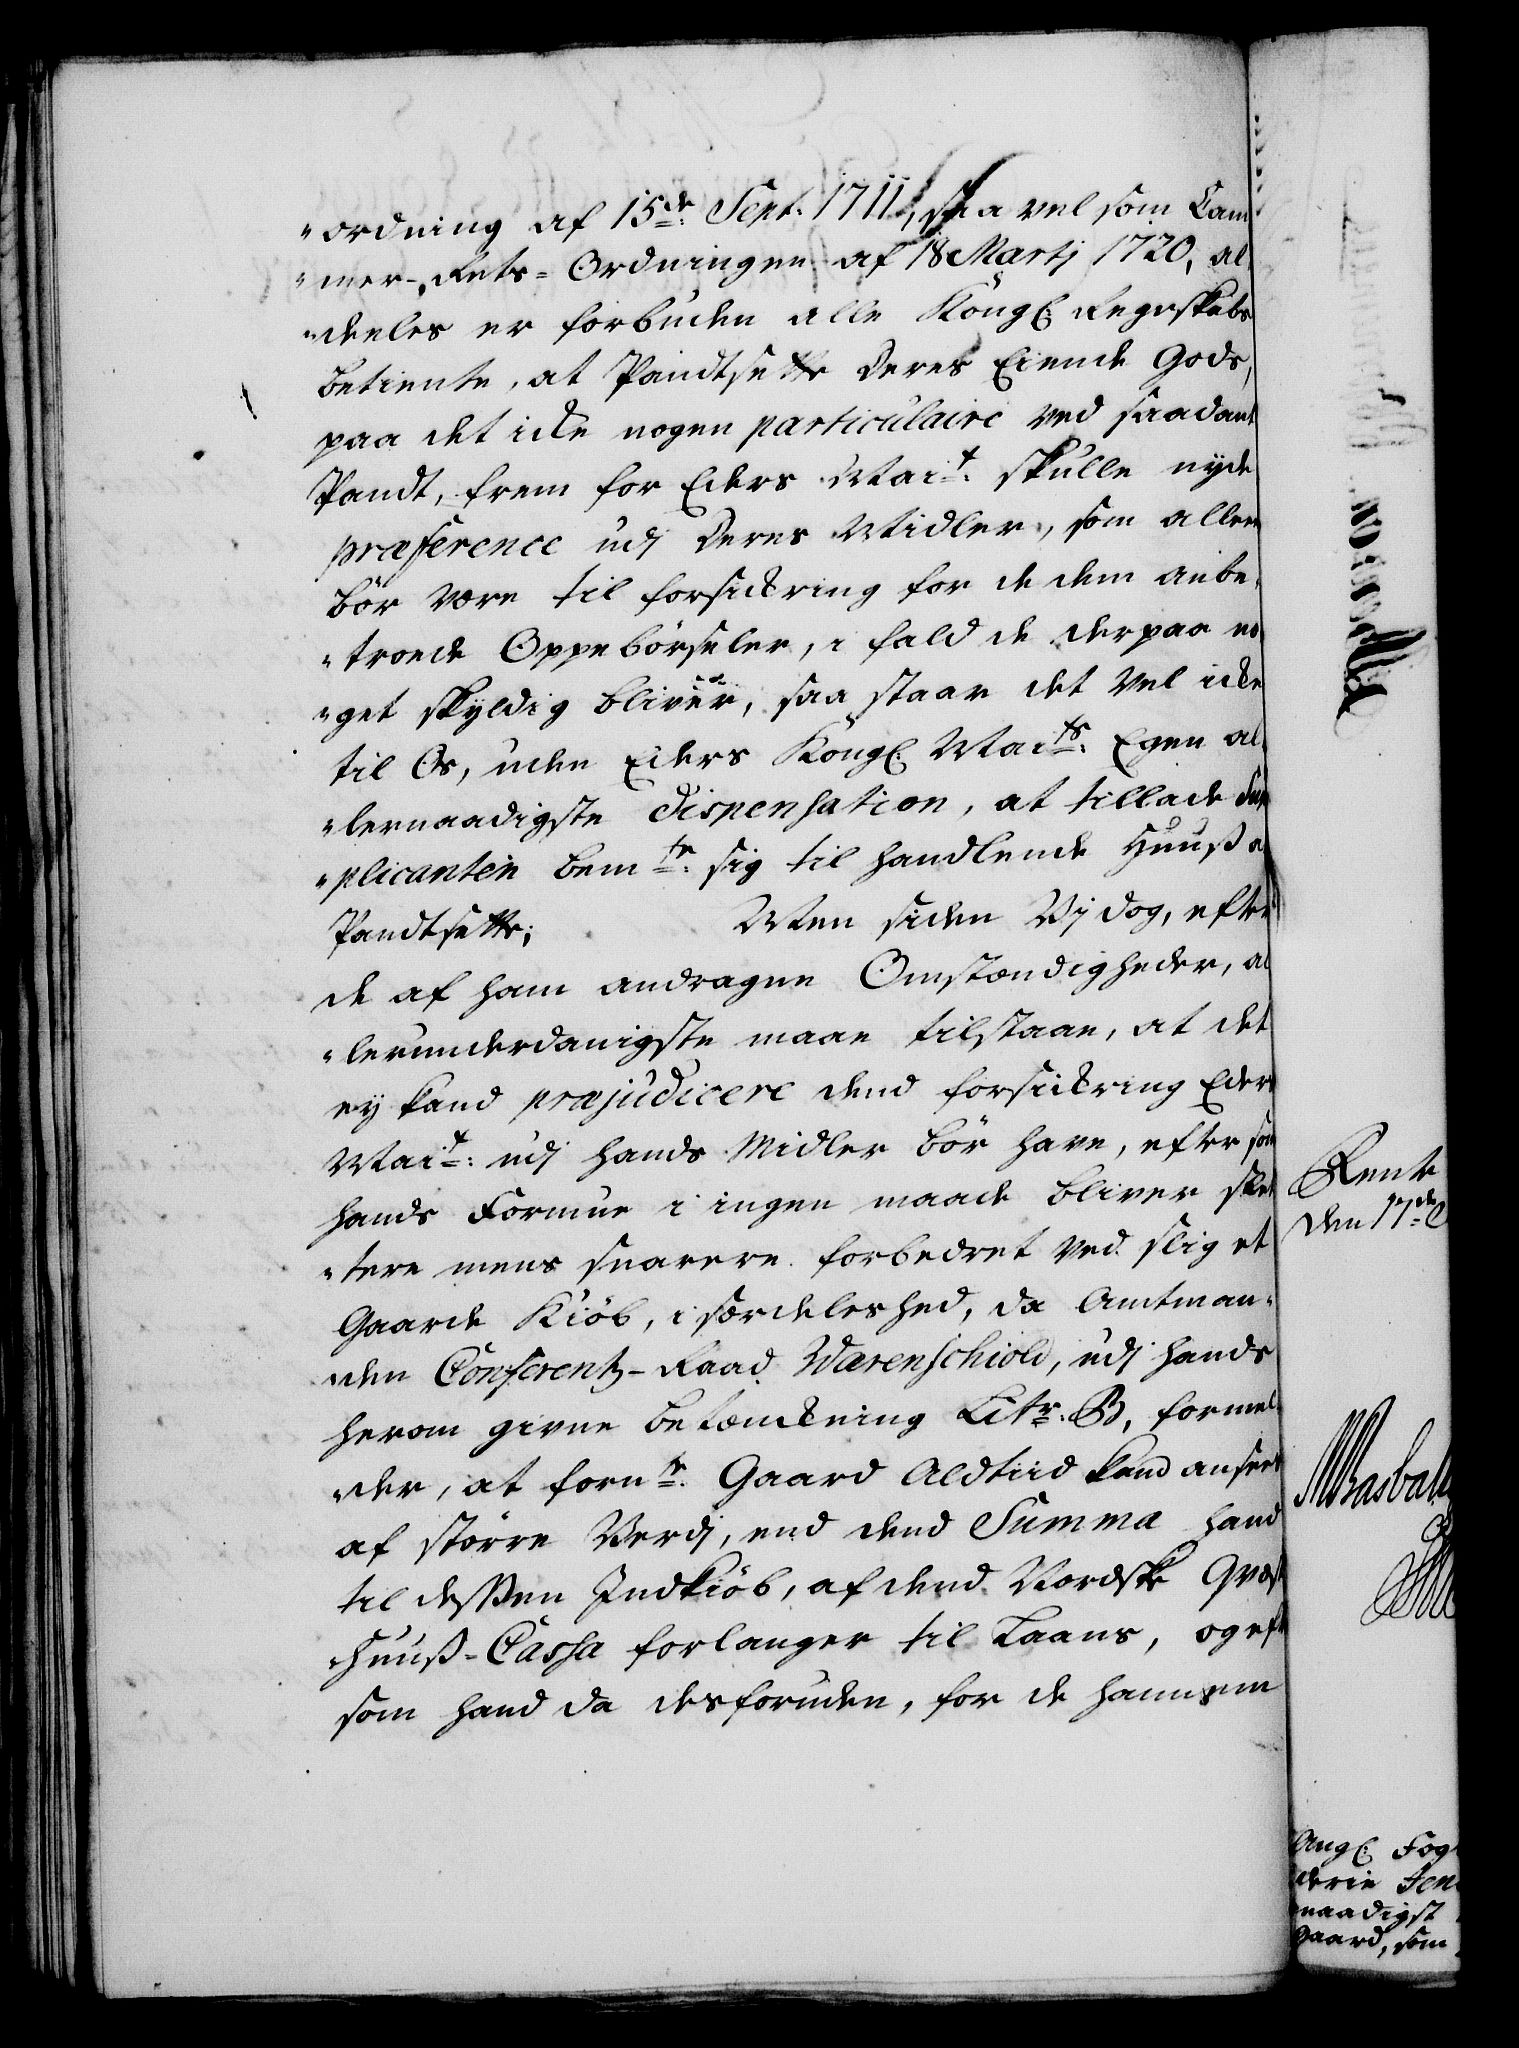 "ordning af 15de Sept: 1711, saa vel som Cam
"mer-Rets-Ordningen af 18 Martj 1720, al
"deeles er forbuden alle Kongl: Regnskabs
betiente, at Pandtsette deres Eiende Gods,
paa det icke nogen particulaire ved saadant
Pandt, frem for Eders Mait: skulle nyde
præference udj deres Midler, som alleen
bör være til forsickring for de dem anbe,
"troede Oppebörseler, i fald de derpaa no
"get skyldig bliver, saa staar det vel icke
til Os, uden Eders Kongl: Maits: Egen al,
"lernaadigste Dispensation, at tillade Sup
"plicanten bemte: sig til handlende Huuß a
Pandtsette; Men siden Vj dog, efter
de af ham andragne Omstændigheder, al
"lerunderdanigste maae tilstaae, at det
ey kand præjudicere dend forsickring Eders
Mait: udj hands Midler bör have, efter som
hands Formue i ingen maade bliver slet
"tere mens snarere forbedret ved slig et
Gaarde Kiöb, i særdeleshed, da Amtman,
"den Conferentz-Raad Warenschiold, udj hands
herom givne betænckning Litr: B, formel,
"der, at fornte: Gaard Altiid kand ansees
af större Verdj, end dend Summa hand
til deßen Indkiöb, af dend Norske Qvæst
Huuß-Cassa forlanger til Laans, og eft
som hand da desforuden, for de hannem
Rente
den 17de
Angl: Fog
derie Jen
naadigst
Gaard, som